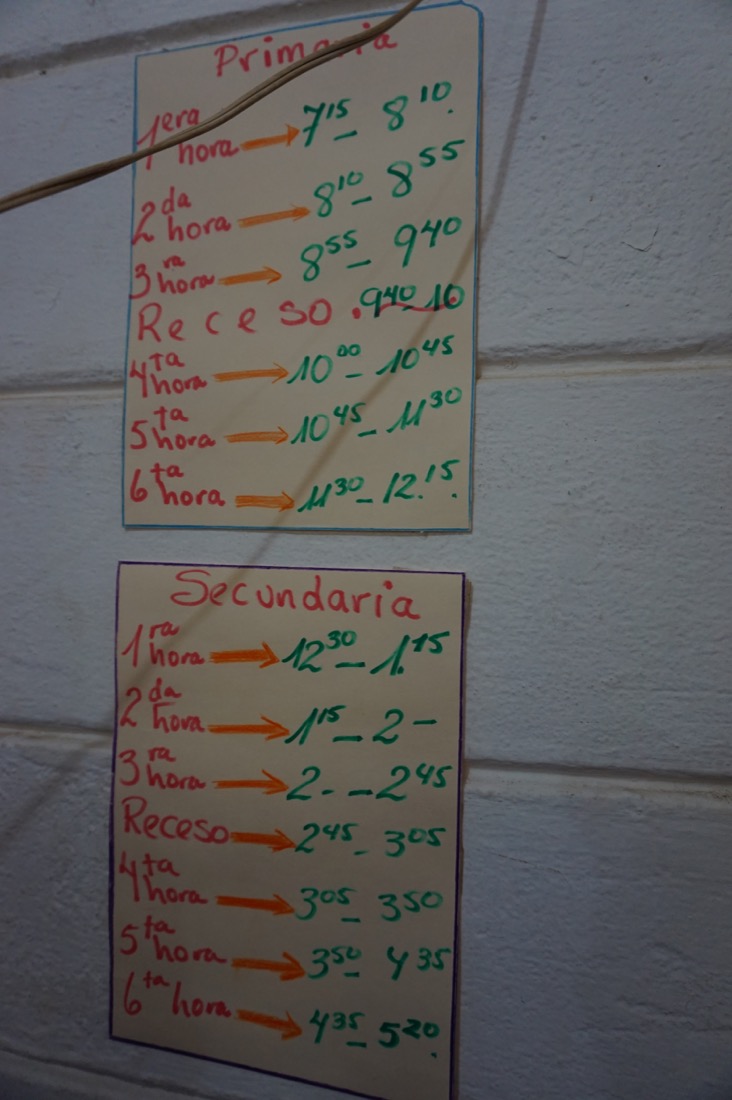 Primaria
1era hora → 7 15 – 8 10.
2da hora → 8 10 – 8 55
3ra hora → 8 55 – 9 40
Receso . 9 40 – 10
4ta hora → 10 00 – 10 45
5ta hora → 10 45 – 11 30
6ta hora → 11 30 – 12.15.
Secundaria
1ra hora → 12 30 – 1.15
2da hora → 1 15 – 2 –
3ra hora → 2. – 2 45
Receso → 2 45 – 3 05
4ta hora → 3 05 – 3 50
5ta hora → 3 50 – 4 35
6ta hora → 4 35 – 5 20.